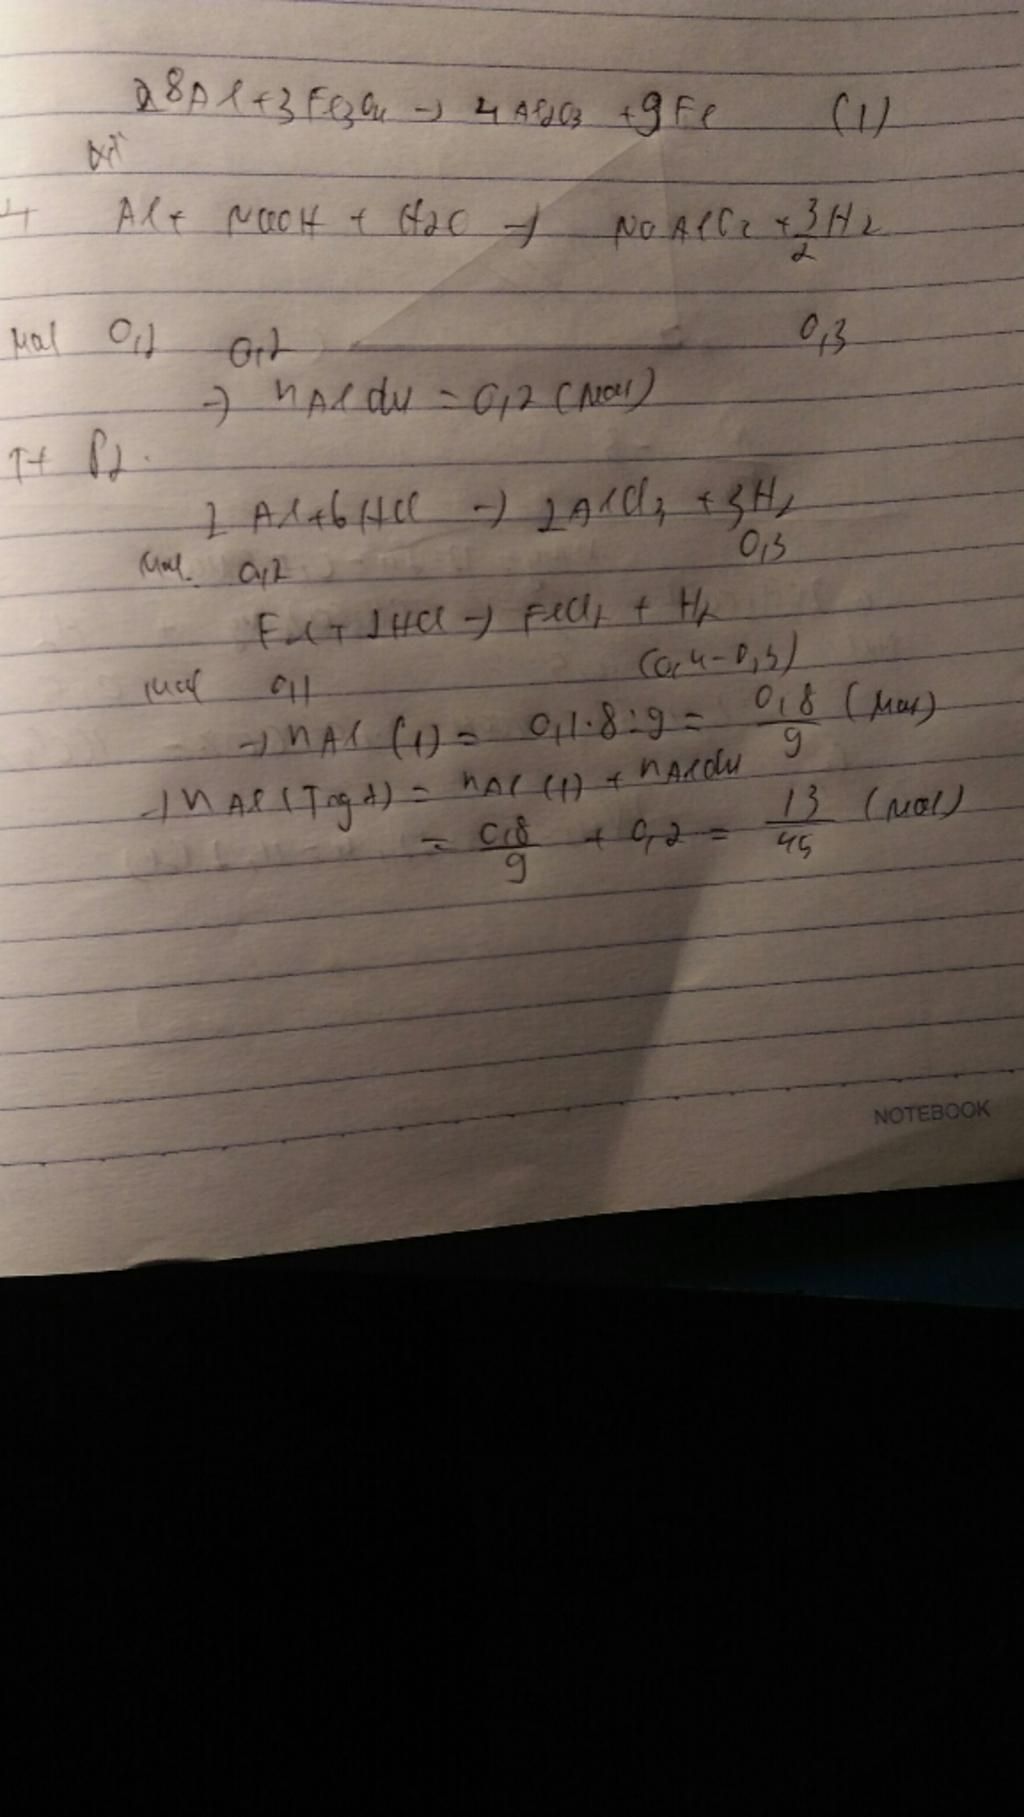 8Al + 3Fe3O4 → 4Al2O3 + 9Fe (1)
Al + NaOH + H2O → NaAlO2 + 3/2 H2
Mol 0,2 0,2 0,3
→ nAl dư = 0,2 (Mol)
P2.
2Al + 6HCl → 2AlCl3 + 3H2
Mol 0,2 0,3
Fe + 2HCl → FeCl2 + H2
Mol 0,1 (0,4-0,3)
→ nAl (1) = 0,1.8:9 = 0,8/9 (Mol)
→ nAl = nAl (1) + nAl dư
= 0,8/9 + 0,2 = 13/45 (Mol)
NOTEBOOK